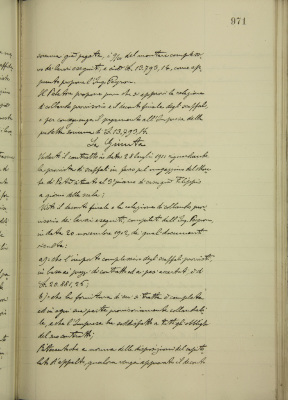 971
somma già pagata, i 9/10 del montare complessi-
vo de' lavori eseguiti, e cioè L. 13.793,16, come ap-
punto propone l'Ing. Peyron.
Il Relatore propone però che si approvi la relazione
di collaudo provvisorio e il conto finale degli scaffali,
e per conseguenza il pagamento all'Impresa della
predetta somma di L. 13.793,16.
La Giunta
Veduto il contratto in data 28 luglio 1911 riguardante
la provvista di scaffali in ferro pel magazzino
di
a giorno della scala;
Visti il conto finale e la relazione di collaudo prov-
visorio dei lavori eseguiti, compilati dall'Ing. Peyron,
in data 20 novembre 1912, da' quali documenti
risulta:
a) che l'importo complessivo degli scaffali provvisti,
in base ai prezzi di contratto ed ai posteriori, è di
L. 20.881,25;
b) che la fornitura di cui si tratta è completa
ed in ogni sua parte, provvisoriamente collaudabi-
le, poichè l'Impresa ha soddisfatto a tutti gli obblighi
del suo contratto;
Rilevato che a norma delle disposizioni del capito-
lato d'appalto, qualora venga approvato il conto